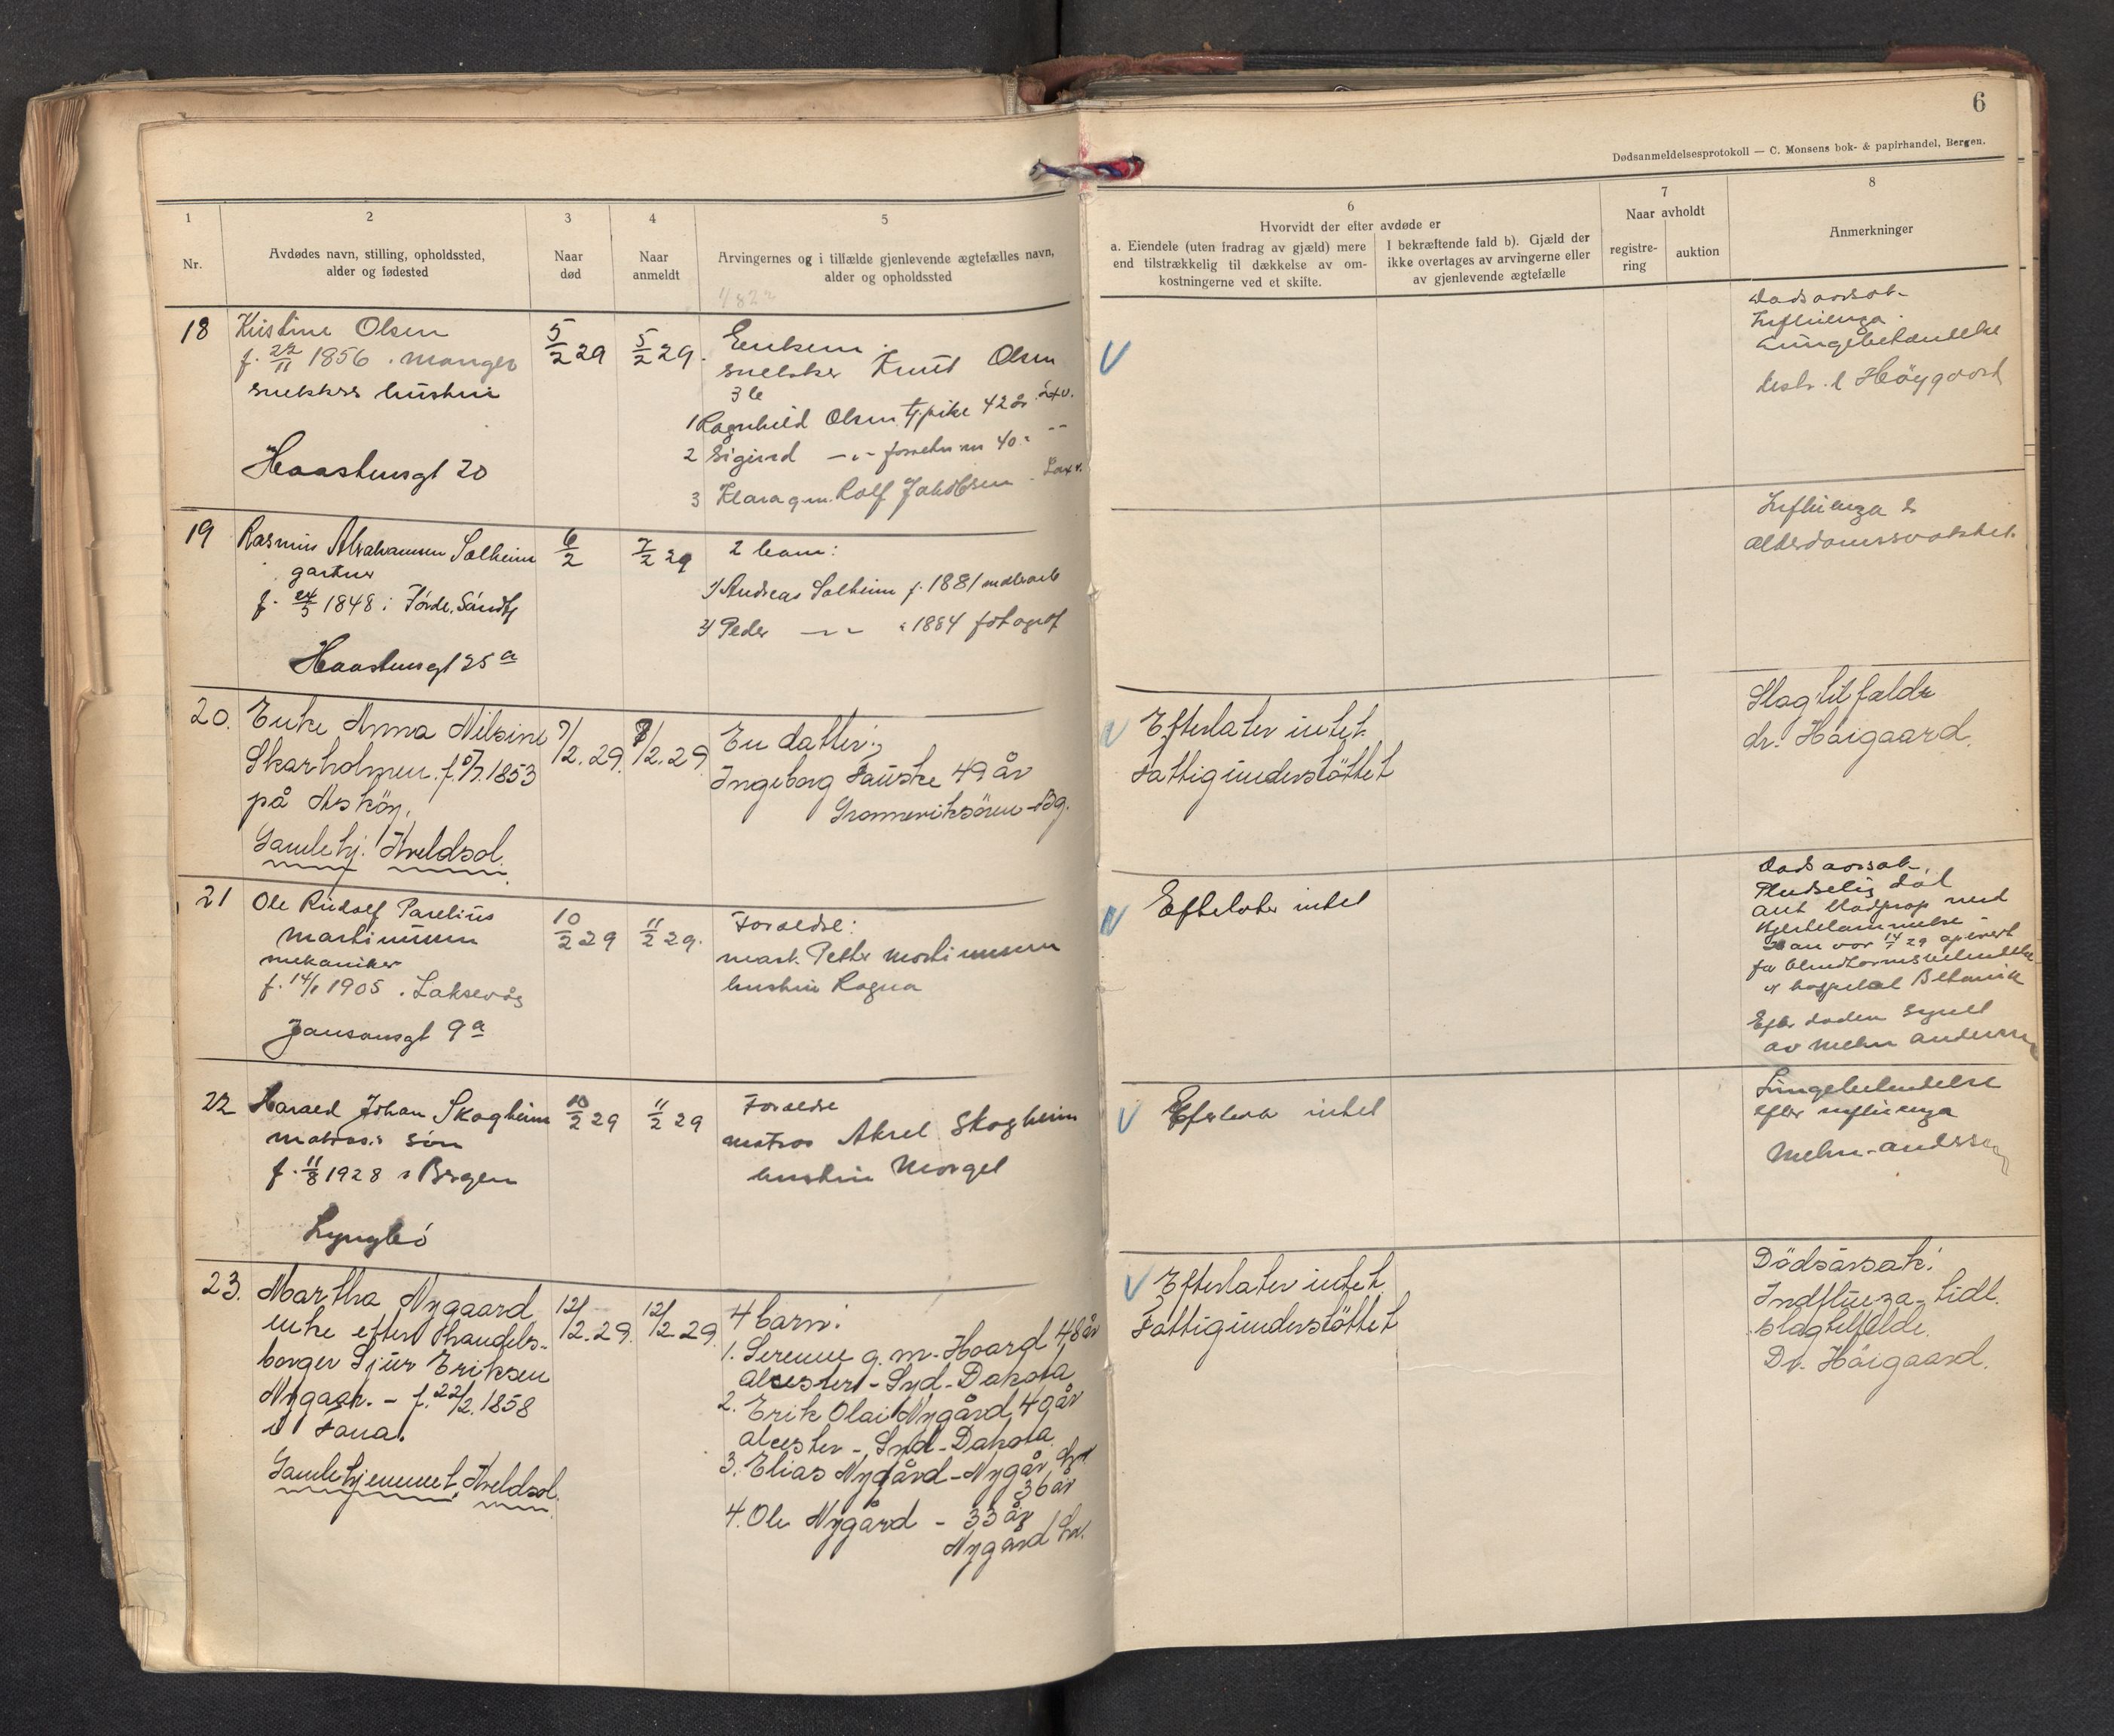 6
Dødsanmeldelsesprotokoll — C. Monsens bok- & papirhandel, Bergen.
1
2
3
4
5
6
7
8
Nr.
Avdødes navn, stilling, opholdssted,
alder og fødested
Naar
død
Naar
anmeldt
Arvingernes og i tilfælde gjenlevende ægtefælles navn,
alder og opholdssted
Hvorvidt der efter avdøde er
a. Eiendele (uten fradrag av gjæld) mere
end tilstrækkelig til dækkelse av om-
kostningerne ved et skifte.
I bekræftende fald b). Gjæld der
ikke overtages av arvingerne eller
av gjenlevende ægtefælle
Naar avholdt
registre-
ring
auktion
Anmerkninger
18
Kristine Olsen
f. 22/11 1856 . Manger
snekkers hustru
Haastensgt 20
5/2 29
5/2 29.
Enkem.
snekker Knut Olsen
3 b
1 Ragnhild Olsen tj.pike 42 år
2 Sigurd -"- 40
3 Klara g.m. Rolf Jakobsen
Dødsaarsak
Influenza
Lungebetændelse
distr. l Höygaard
19
Rasmus Abrahamsen Solheim
gartner
f. 24/5 1848 i Förde, Söndfj
Haastensgt 25 a
6/2
7/2 29
2 barn:
1/ Andreas Solheim f. 1881 malerarb
2/ Peder — " — " 1884 fotograf
Influenza &
alderdomssvakhet.
20.
Enke Anna Nilsine
Skarholmen. f. 5/7. 1853
på Asköy.
Gamlehj. Kveldsol.
7/2. 29.
8/2. 29.
En datter:
Ingeborg Fauske 49 år
Efterlater intet.
Fattigunderstöttet
Slagtilfælde
dr. Höigaard.
21
Ole Rudolf Parelius
Martinussen
mekaniker
f. 14/1 1905 . Laksevåg
Jansonsgt 9 a
10/2 29
11/2 29.
Forældre:
mask. Petter Martinussen
hustru Ragna
Efterlater intet
Dødsaarsak
Pludselig död
ant blodprop med
hjertelammelse
Han var 14/1 29 operert
for blindtarmsbetendelse
på hospital Betanien
Efter döden synet
av Mehn Andersen
22
Harald Johan Skogheim
matros sön
f. 11/8 1928 i Bergen
Lyngbö
10/2 29
11/2 29
Forældre
matros Aksel Skogheim
hustru Margit
Efterlater intet
Lungebetendelse
efter influenza
Mehn-Andersen
23.
Martha Nygaard
enke efter handels-
borger Sjur Eriksen
Nygaar. – f. 22/2. 1858
i Fana.
Gamlehjemmet, Kveldsol.
12/2. 29.
12/2. 29.
4 barn:
1. Serenne g. m. Hoard 48 år
Alcester – Syd-Dakota
2. Erik Olai Nygård, 49 år
Alcester – Syd-Dakota
3. Elias Nygård – Nygår,
36 år
4. Ole Nygård – 33 år
Nygård Lv.
Efterlater intet.
Fattigunderstöttet
Dödsårsak:
Indflüeza – tidl.
slagtilfelde.
Dr. Höigaard.